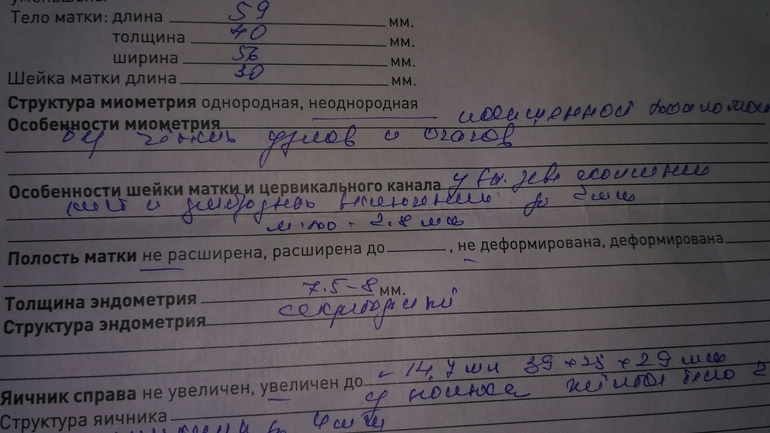 Тело матки: длина 59 мм.
толщина 40 мм.
ширина 56 мм.
Шейка матки длина 30 мм.
Структура миометрия однородная, неоднородная
Особенности миометрия
без узлов и очагов
Особенности шейки матки и цервикального канала у вн. зева скопление
кист и до 2мм
м-эхо - 2.8 мм
Полость матки не расширена, расширена до , не деформирована, деформирована
Толщина эндометрия 7.5-8 мм.
Структура эндометрия секреторный
Яичник справа не увеличен, увеличен до - 14,7 мл 39 × 25 × 29 мм
Структура яичника у полюса желтое тело
4 мм